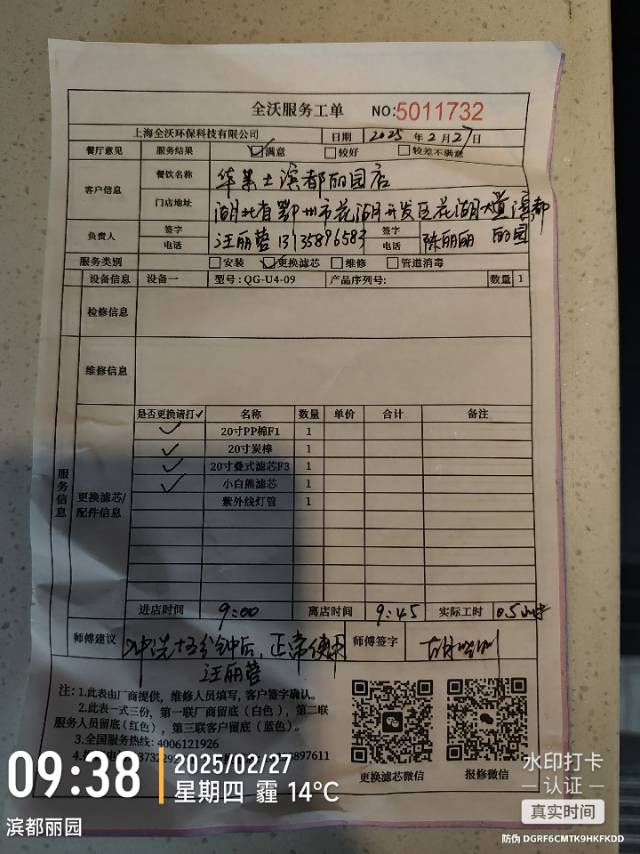 全沃服务工单 NO:5011732
上海全沃环保科技有限公司 日期 2025 年 2 月 27 日
餐厅意见 服务结果 满意 较好 较差不满意
客户信息 餐饮名称 华莱士滨都丽园店
门店地址 湖北省鄂州市花湖开发区花湖大道滨都丽园
负责人 签字 汪丽蓉 签字 陈丽丽
电话 13135896583 电话
服务类别 安装 更换滤芯 维修 管道消毒
设备信息 设备一 型号:QG-U4-09 产品序列号: 数量 1
检修信息
维修信息
服务信息
更换滤芯/配件信息
是否更换请打✓ 名称 数量 单价 合计 备注
✓ 20寸PP棉F1 1
✓ 20寸炭棒 1
✓ 20寸叠式滤芯F3 1
✓ 小白熊滤芯 1
紫外线灯管 1
进店时间 9:00 离店时间 9:45 实际工时 0.5小时
师傅建议 冲洗十五分钟后,正常使用 师傅签字
汪丽蓉
注:1.此表由厂商提供,维修人员填写,客户签字确认。
2.此表一式三份,第一联厂商留底(白色),第二联
服务人员留底(红色),第三联客户留底(蓝色)。
3.全国服务热线:4006121926
更换滤芯微信 报修微信
09:38 2025/02/27
星期四 霾 14°C
滨都丽园
水印打卡
认证
真实时间
防伪 DGRF6CMTK9HKFKDD